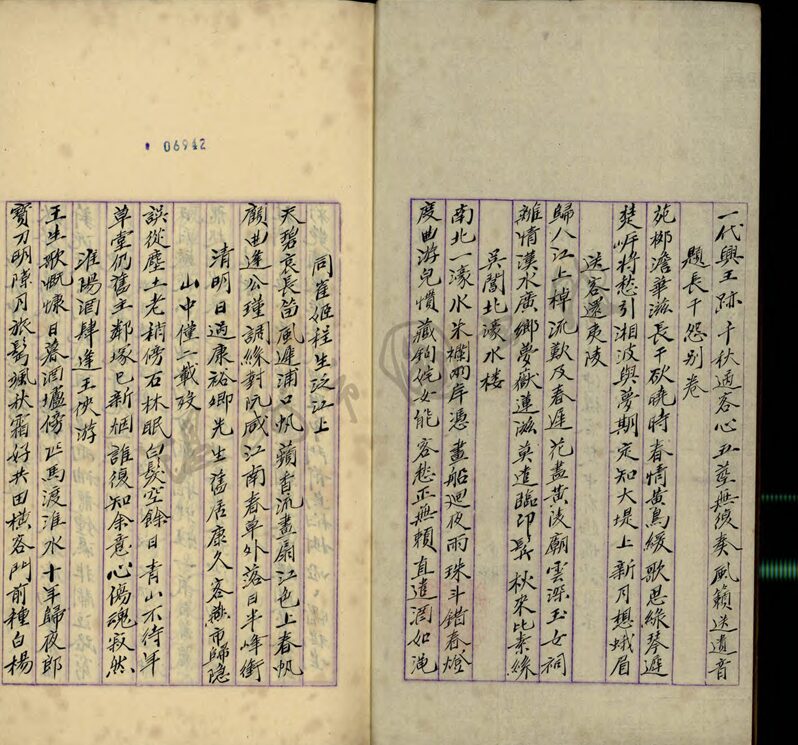 一代興王跡千秋過客心五莖無復奏風籟送遺音
題長干怨別卷
苑柳澹華滋長干欲曉時春情黃鳥緩歌思綠琴遲
楚岸將愁引湘波與夢期定知大堤上新月想蛾眉
送客還夷陵
歸人江上棹流歎及春遲花盡黃陵廟雲深玉女祠
離情漢水廣鄉夢嶽蓮滋莫遣臨邛髩秋來比素絲
吳閶北濠水樓
南北一濠水朱欄兩岸憑畫船迴夜雨珠斗錯春燈
度曲游兒慣藏鉤姹女能客愁正無賴直遣酒如澠
06942
同崔姬程生泛江上
天碧哀長笛風遲浦口帆蘋香流畫扇江色上春帆
顧曲逢公瑾調絲對阮咸江南春草外落日半峰銜
清明日過康裕卿先生舊居康久客燕市歸隱
山中僅二載歿
誤從塵土老稍傍石林眠白髮空餘日青山不待年
草堂仍舊主鄰塚已新烟誰復知余意心傷魂寂然
淮陽酒肆逢王俠游
王生歌慨慷日暮酒壚傍匹馬渡淮水十年歸夜郎
寶刀明隙月旅髩颯秋霜好共田橫客門前種白楊